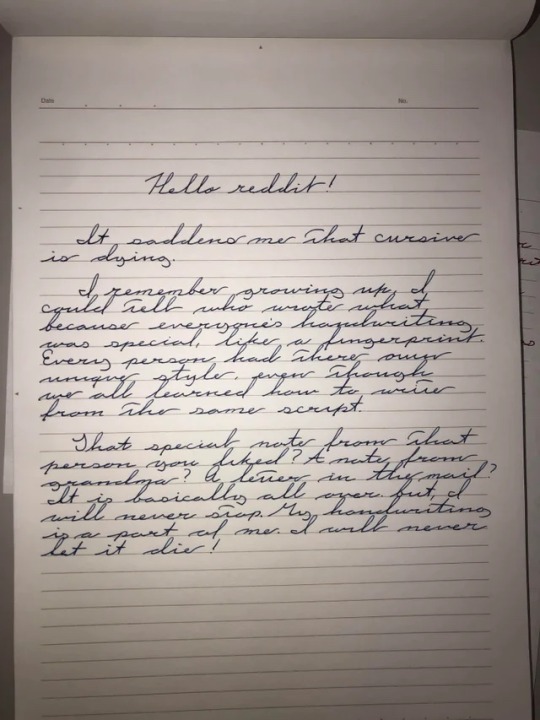 Date
No.
Hello reddit!
It saddens me that cursive
is dying.
I remember growing up, I
could tell who wrote what
because everyone's handwriting
was special, like a fingerprint.
Every person had there own
unique style, even though
we all learned how to write
from the same script.
That special note from that
person you liked? A note from
grandma? A letter in the mail?
It is basically all over but, I
will never stop. My handwriting
is a part of me. I will never
let it die!